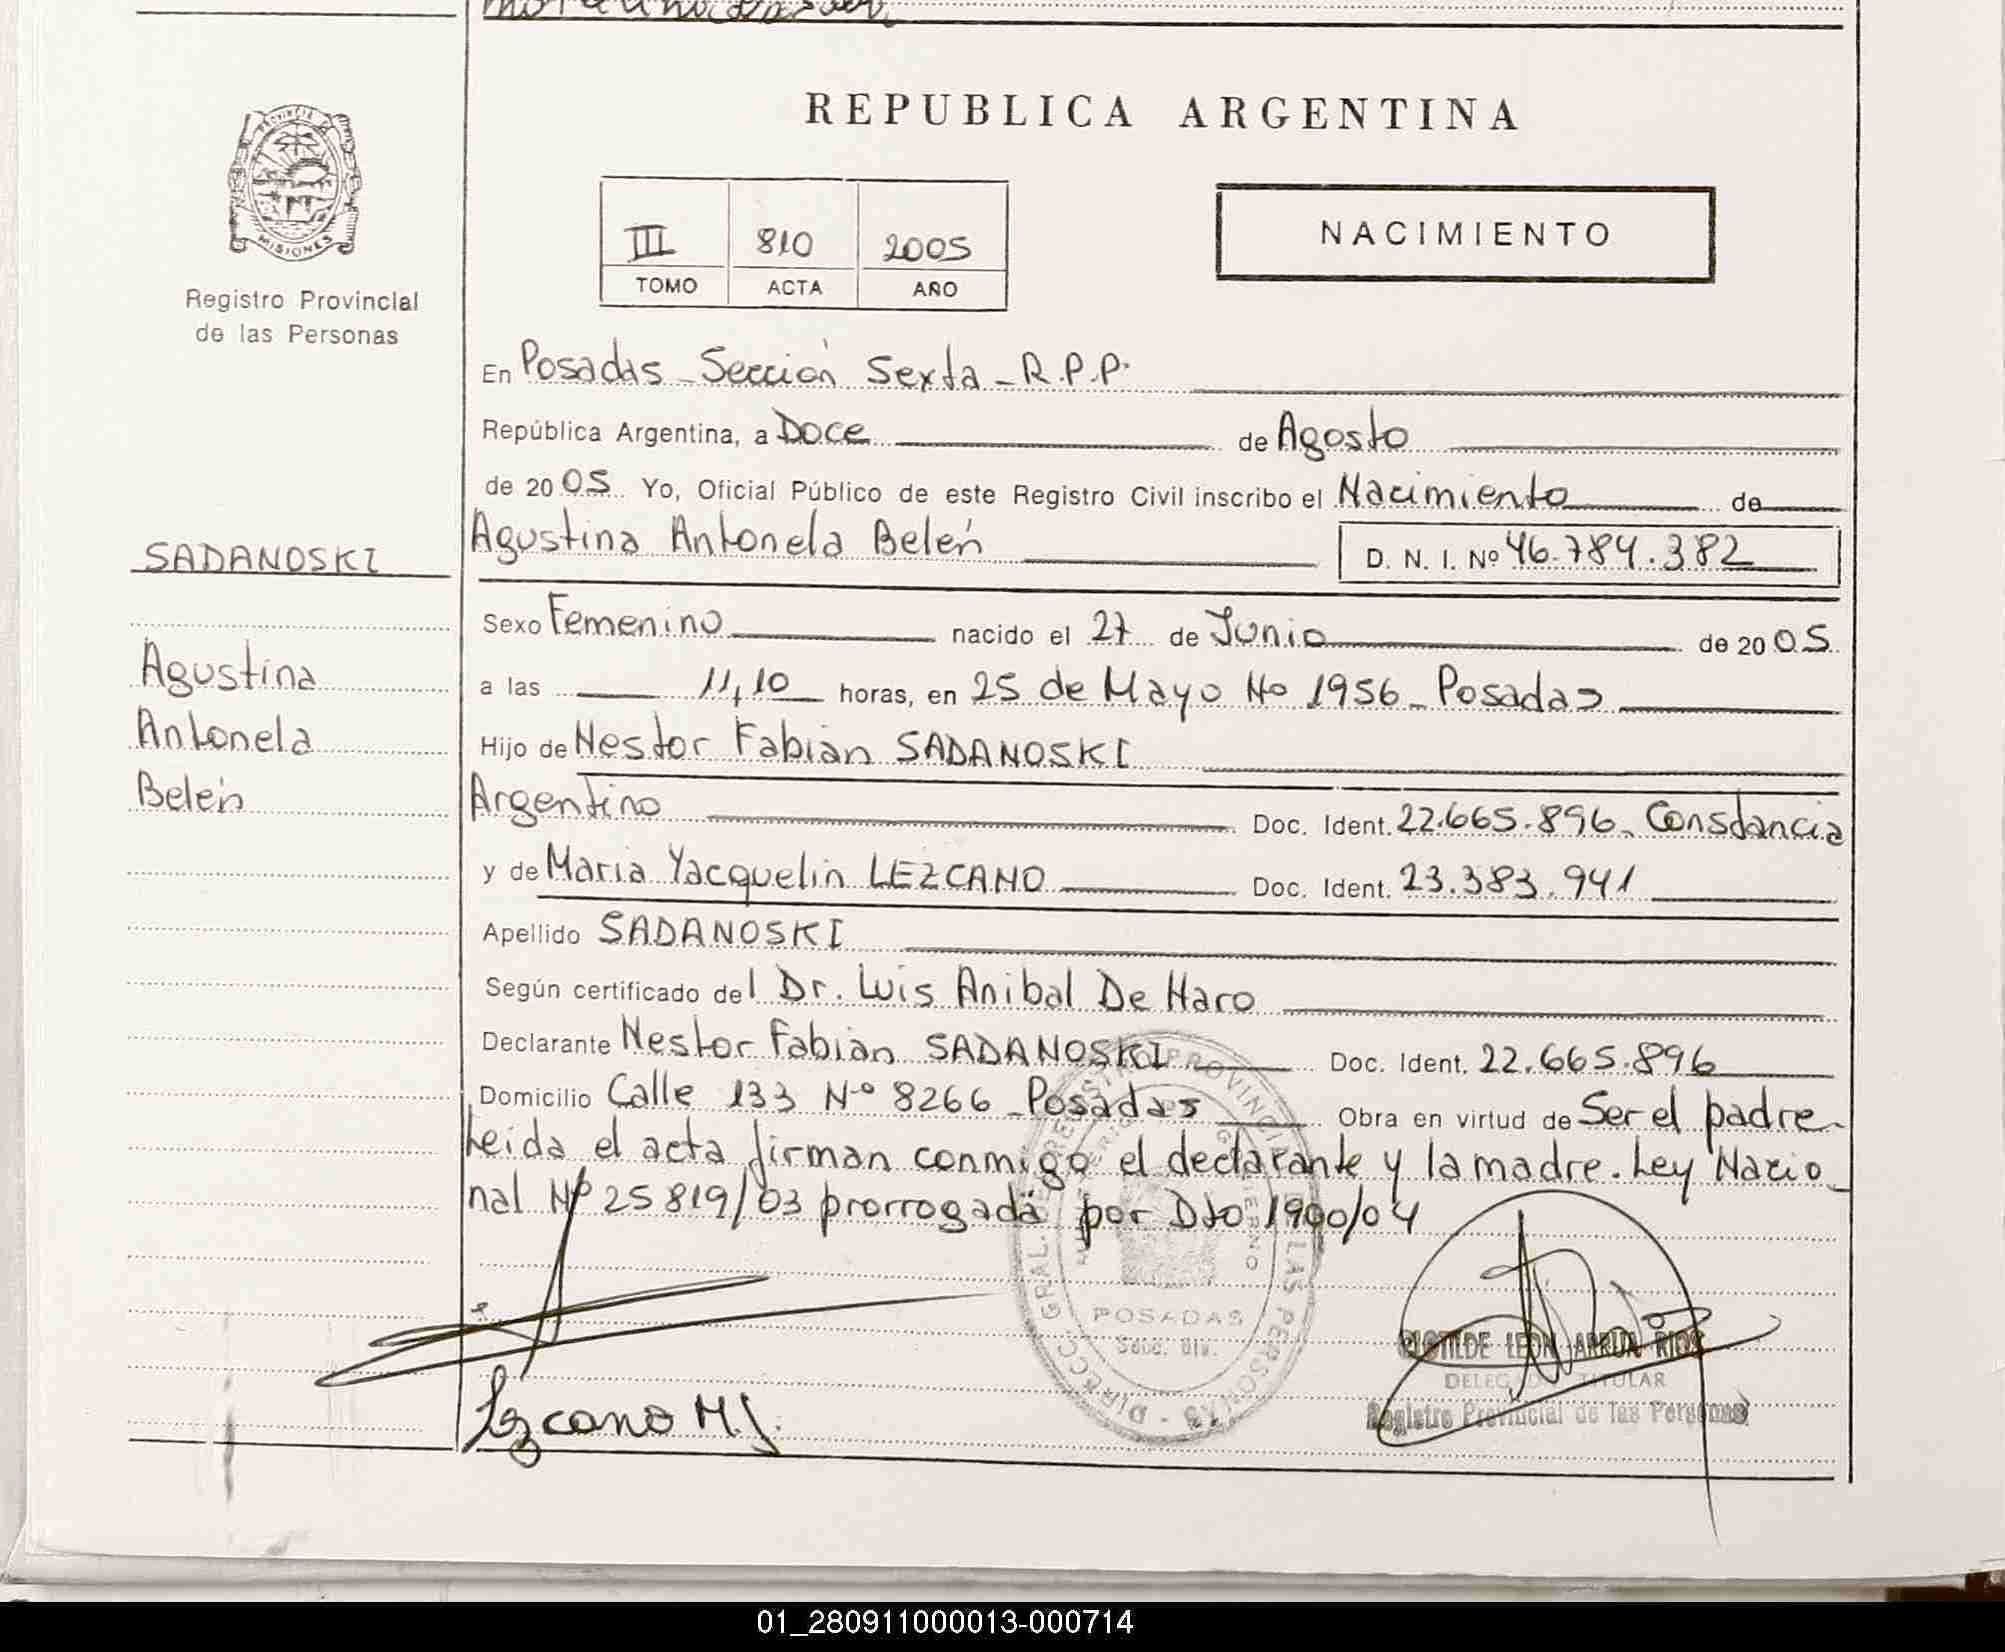 REPUBLICA ARGENTINA
PROVINCIA DE
MISIONES
Registro Provincial
de las Personas
III 810 2005
TOMO ACTA AÑO
NACIMIENTO
En Posadas - Sección Sexta - R.P.P.
República Argentina, a Doce de Agosto
de 2005 Yo, Oficial Público de este Registro Civil inscribo el Nacimiento de
SADANOSKI
Agustina Antonela Belén D. N. I. Nº 46.784.382
Sexo Femenino nacido el 27 de Junio de 2005
Agustina
a las 11,10 horas, en 25 de Mayo Nº 1956 - Posadas
Antonela
Hijo de Nestor Fabián SADANOSKI
Belén
Argentino Doc. Ident. 22.665.896. Constancia
y de Maria Yacquelin LEZCANO Doc. Ident. 23.383.941
Apellido SADANOSKI
Según certificado del Dr. Luis Anibal De Haro
Declarante Nestor Fabián SADANOSKI Doc. Ident. 22.665.896
Domicilio Calle 133 Nº 8266 - Posadas Obra en virtud de Ser el padre.
Leida el acta firman conmigo el declarante y la madre. Ley Nacio-
nal Nº 25819/03 prorrogada por Dto 1900/04
DIRECC. GRAL. REGISTRO PROVINCIAL DE LAS PERSONAS
POSADAS
Lezcano M. J.
CLOTILDE LEON ARRUA RIOS
DELEGADA TITULAR
Registro Provincial de las Personas
01_280911000013-000714